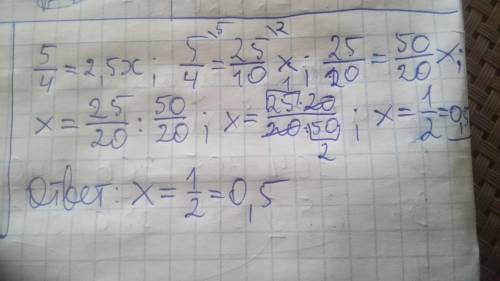 5/4 = 2,5x; 5/4 \5 = 25/10 \2 x; 25/20 = 50/20 x;
x = 25/20 : 50/20; x = 25·20/20·50 1 2; x = 1/2 = 0,5
Ответ: x = 1/2 = 0,5